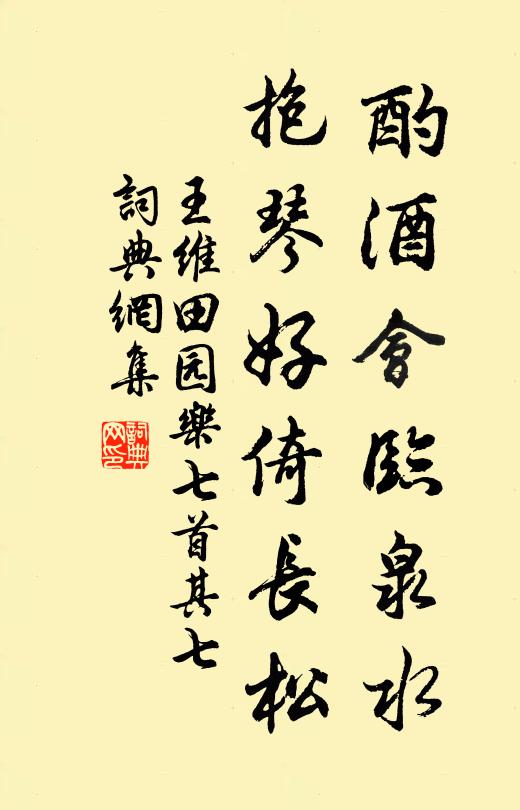 酌酒會臨泉水
抱琴好倚長松
王維田园樂七首其七
詞典網集
詞典网印